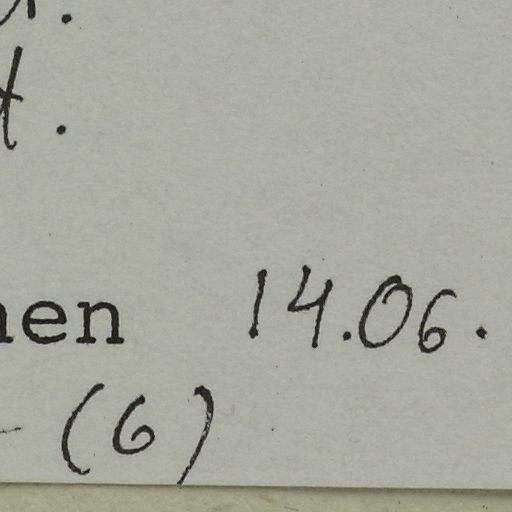 t.
nen 14.06.
- (6)